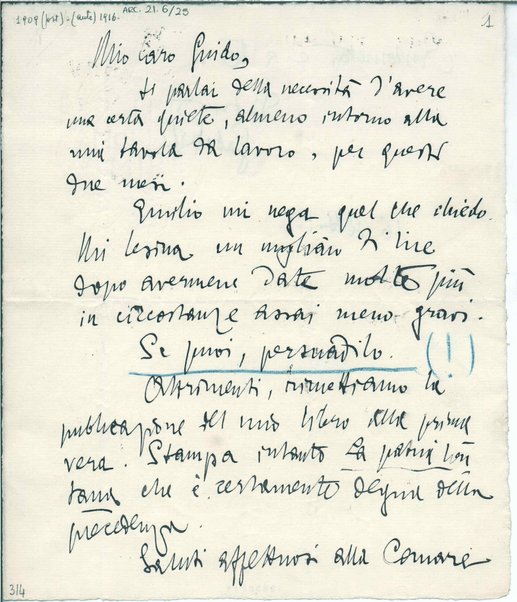 1909 (post) - (ante) 1916. ARC. 21.6/25
1
Mio caro Guido,
ti parlai della necessità d'avere
una certa quiete, almeno intorno alla
mia tavola da lavoro, per questi
due mesi.
Emilio mi nega quel che chiedo.
Mi lesina un migliaio di lire
dopo avermene date molte più
in circostanze assai meno gravi.
Se puoi, persuadilo. (!)
Altrimenti, rimettiamo la
pubblicazione del mio libro alla prima
vera. Stampa intanto La patria lon
tana che è certamente degna della
precedenza.
Saluti affettuosi alla Comare
314